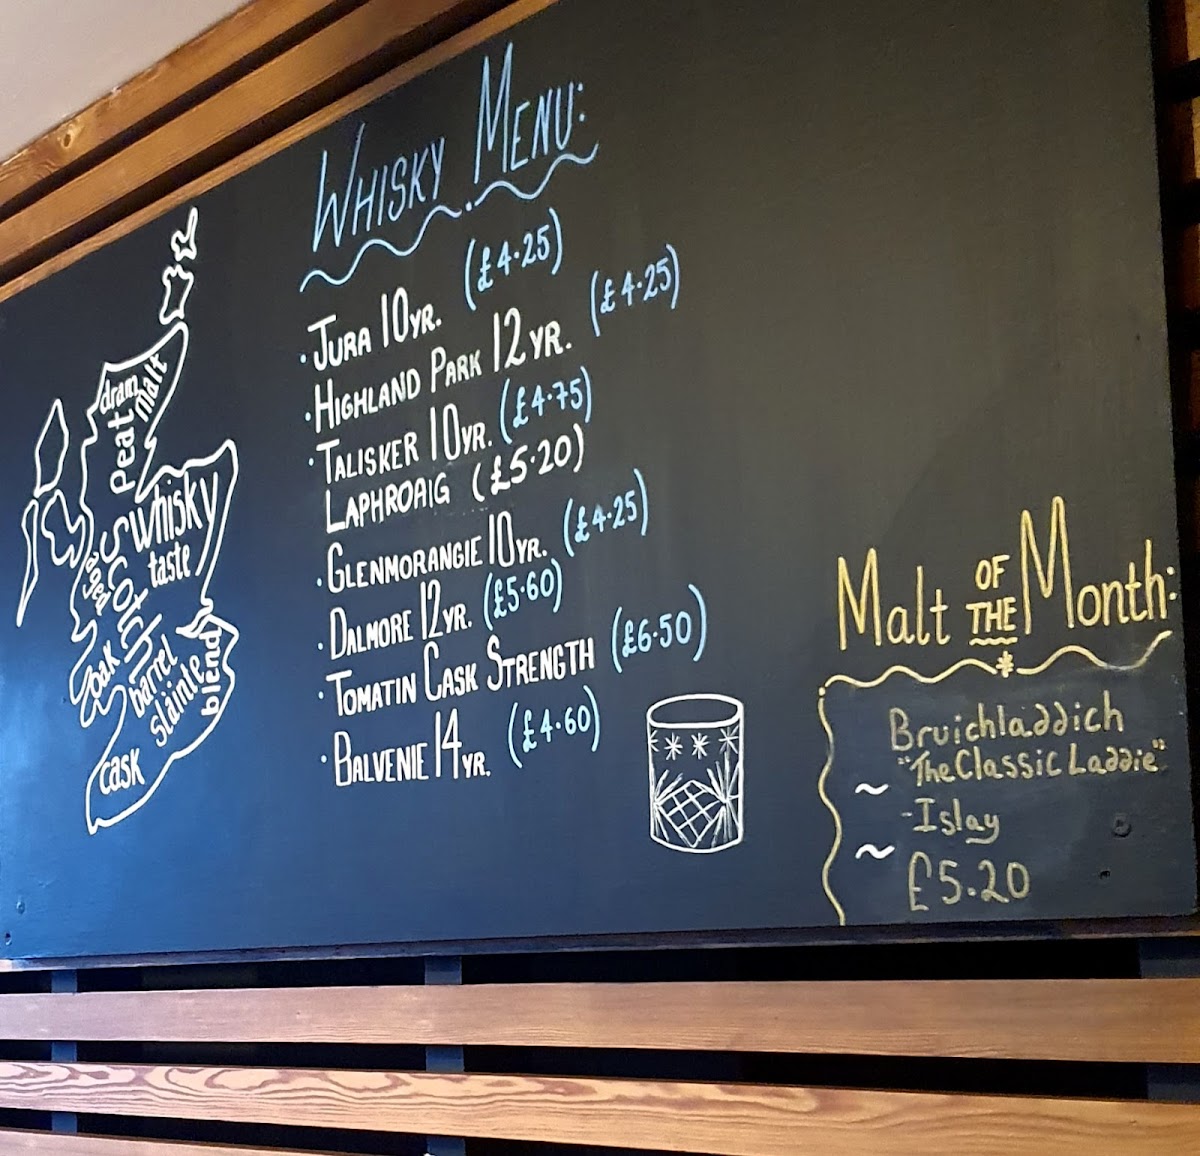 WHISKY MENU:
· JURA 10YR. (£4.25)
· HIGHLAND PARK 12YR. (£4.25)
· TALISKER 10YR. (£4.75)
LAPHROAIG (£5.20)
· GLENMORANGIE 10YR. (£4.25)
· DALMORE 12YR. (£5.60)
· TOMATIN CASK STRENGTH (£6.50)
· BALVENIE 14YR. (£4.60)
dram
malt
Peat
Whisky
taste
aged
SCOTTISH
oak
barrel
sláinte
blend
cask
Malt OF THE Month:
Bruichladdich
"The Classic Laddie"
~ -Islay
~ £5.20